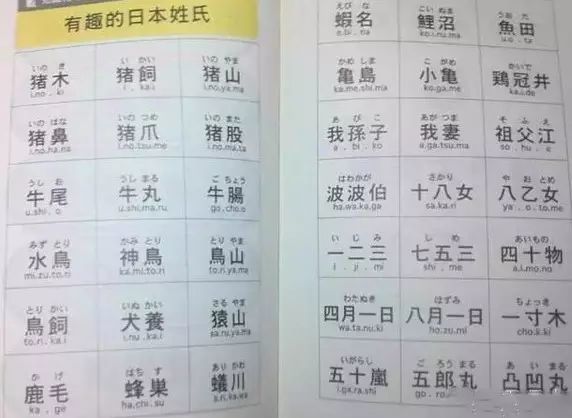 有趣的日本姓氏
いの き　い かい　いの やま
猪木　猪飼　猪山
i.no . ki　i . ka.i　i.no.ya.ma
いの はな　いの つめ　いの また
猪鼻　猪爪　猪股
i.no.ha.na　i.no.tsu.me　i.no.ma.ta
うし お　うし まる　ご ちょう
牛尾　牛丸　牛腸
u.shi . o　u.shi.ma.ru　go.cho.o
みず とり　かみ とり　とり やま
水鳥　神鳥　鳥山
mi.zu.to.ri　ka.mi.to.ri　to.ri.ya.ma
とり かい　いぬ かい　さる やま
鳥飼　犬養　猿山
to.ri.ka.i　i.nu . ka.i　sa.ru.ya.ma
か げ　はち す　あり かわ
鹿毛　蜂巣　蟻川
ka . ge　ha.chi . su　a.ri.ka.wa
えび な　こい ぬま　うお た
蝦名　鯉沼　魚田
e.bi.na　ko.i.nu.ma　u.o . ta
かめ しま　こ がめ　かいで
亀島　小亀　鶏冠井
ka.me.shi.ma　ko.ga.me　ka.i.de
あ び こ　あ がつ ま　そ ふ え
我孫子　我妻　祖父江
a . bi . ko　a.ga.tsu.ma　so . hu . e
はわかが　さかり　や お とめ
波波伯　十八女　八乙女
ha.wa.ka.ga　sa.ka.ri　ya . o . to.me
い じ み　し め　あいもの
一二三　七五三　四十物
i . ji . mi　shi . me　a.i.mo.no
わたぬき　はずみ　ちょっき
四月一日　八月一日　一寸木
wa.ta.nu.ki　ho.zu.mi　cho.k.ki
いがらし　ご ろう まる
五十嵐　五郎丸　凸凹丸
i.ga.ra.shi　go . ro . u.ma.ru